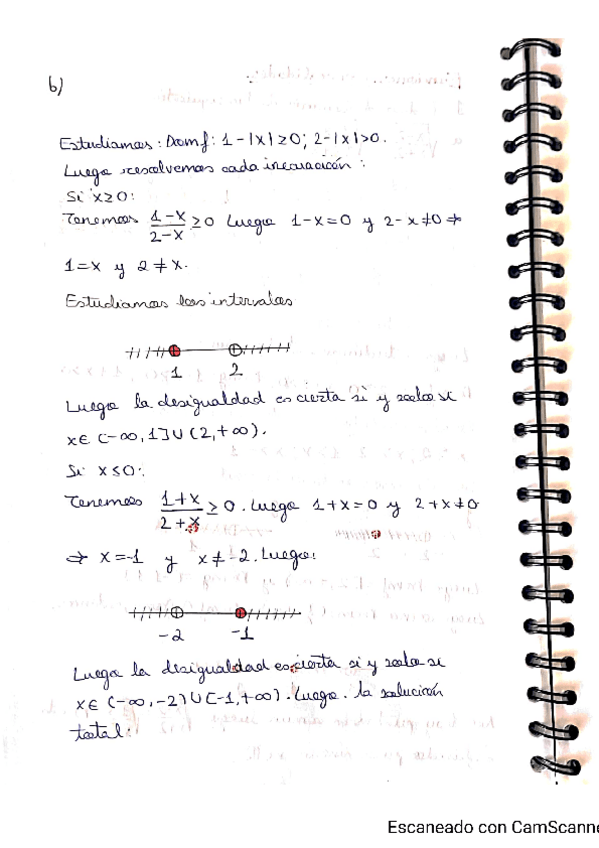 b)
Estudiamos: Dom f: 1-|x| ≥ 0; 2-|x| > 0.
Luego resolvemos cada inecuación:
Si x ≥ 0:
Tenemos (1-x)/(2-x) ≥ 0 Luego 1-x=0 y 2-x≠0 ⇒
1=x y 2≠x.
Estudiamos los intervalos
1 2
Luego la desigualdad es cierta si y solo si
x∈ (-∞, 1] ∪ (2, +∞).
Si x ≤ 0:
Tenemos (1+x)/(2+x) ≥ 0. Luego 1+x=0 y 2+x≠0
⇒ x=-1 y x≠-2. Luego:
-2 -1
Luego la desigualdad es cierta si y solo si
x∈ (-∞, -2) ∪ [-1, +∞). Luego la solución
total:
Escaneado con CamScanne